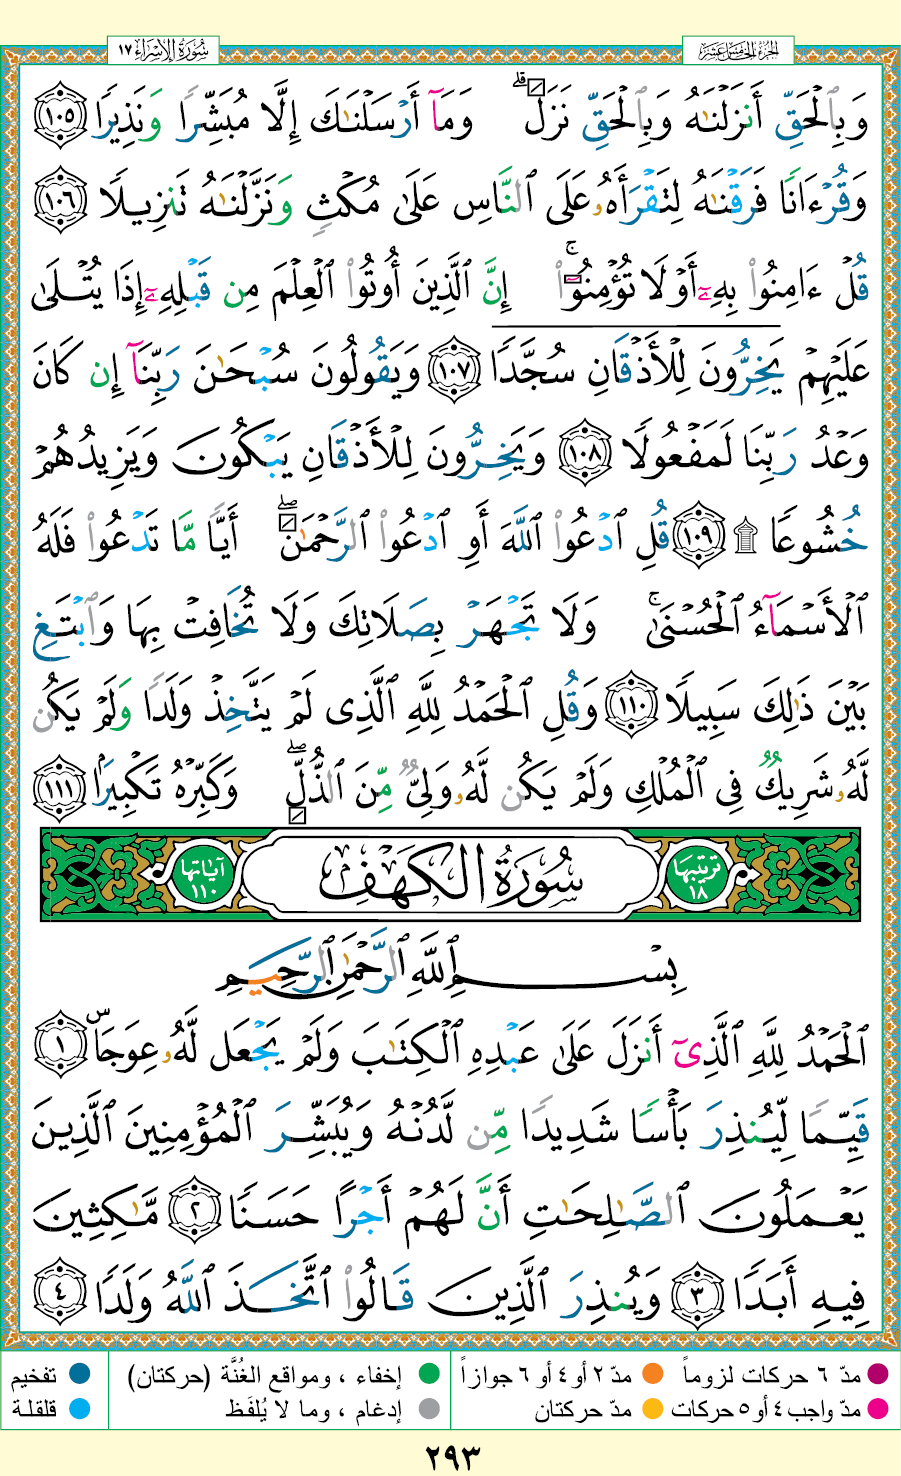 الجزء الخامس عشر
سورة الإسراء ١٧
وَبِٱلْحَقِّ أَنزَلْنَـٰهُ وَبِٱلْحَقِّ نَزَلَ ۗ وَمَآ أَرْسَلْنَـٰكَ إِلَّا مُبَشِّرًا وَنَذِيرًا ١٠٥
وَقُرْءَانًا فَرَقْنَـٰهُ لِتَقْرَأَهُۥ عَلَى ٱلنَّاسِ عَلَىٰ مُكْثٍ وَنَزَّلْنَـٰهُ تَنزِيلًا ١٠٦
قُلْ ءَامِنُوا۟ بِهِۦٓ أَوْ لَا تُؤْمِنُوٓا۟ ۚ إِنَّ ٱلَّذِينَ أُوتُوا۟ ٱلْعِلْمَ مِن قَبْلِهِۦٓ إِذَا يُتْلَىٰ
عَلَيْهِمْ يَخِرُّونَ لِلْأَذْقَانِ سُجَّدًا ١٠٧ وَيَقُولُونَ سُبْحَـٰنَ رَبِّنَآ إِن كَانَ
وَعْدُ رَبِّنَا لَمَفْعُولًا ١٠٨ وَيَخِرُّونَ لِلْأَذْقَانِ يَبْكُونَ وَيَزِيدُهُمْ
خُشُوعًا ۩ ١٠٩ قُلِ ٱدْعُوا۟ ٱللَّهَ أَوِ ٱدْعُوا۟ ٱلرَّحْمَـٰنَ ۖ أَيًّا مَّا تَدْعُوا۟ فَلَهُ
ٱلْأَسْمَآءُ ٱلْحُسْنَىٰ ۚ وَلَا تَجْهَرْ بِصَلَاتِكَ وَلَا تُخَافِتْ بِهَا وَٱبْتَغِ
بَيْنَ ذَٰلِكَ سَبِيلًا ١١٠ وَقُلِ ٱلْحَمْدُ لِلَّهِ ٱلَّذِى لَمْ يَتَّخِذْ وَلَدًا وَلَمْ يَكُن
لَّهُۥ شَرِيكٌ فِى ٱلْمُلْكِ وَلَمْ يَكُن لَّهُۥ وَلِىٌّ مِّنَ ٱلذُّلِّ ۖ وَكَبِّرْهُ تَكْبِيرًۢا ١١١
ترتيبها ١٨ سُورَةُ الكَهْفِ آياتها ١١٠
بِسْمِ ٱللَّهِ ٱلرَّحْمَـٰنِ ٱلرَّحِيمِ
ٱلْحَمْدُ لِلَّهِ ٱلَّذِىٓ أَنزَلَ عَلَىٰ عَبْدِهِ ٱلْكِتَـٰبَ وَلَمْ يَجْعَل لَّهُۥ عِوَجَاۜ ١
قَيِّمًا لِّيُنذِرَ بَأْسًا شَدِيدًا مِّن لَّدُنْهُ وَيُبَشِّرَ ٱلْمُؤْمِنِينَ ٱلَّذِينَ
يَعْمَلُونَ ٱلصَّـٰلِحَـٰتِ أَنَّ لَهُمْ أَجْرًا حَسَنًا ٢ مَّـٰكِثِينَ
فِيهِ أَبَدًا ٣ وَيُنذِرَ ٱلَّذِينَ قَالُوا۟ ٱتَّخَذَ ٱللَّهُ وَلَدًا ٤
مدّ ٦ حركات لزوماً مدّ ٢ أو ٤ أو ٦ جوازاً إخفاء ، ومواقع الغُنَّة (حركتان) تفخيم
مدّ واجب ٤ أو ٥ حركات مدّ حركتان إدغام ، وما لا يُلفَظ قلقلة
٢٩٣